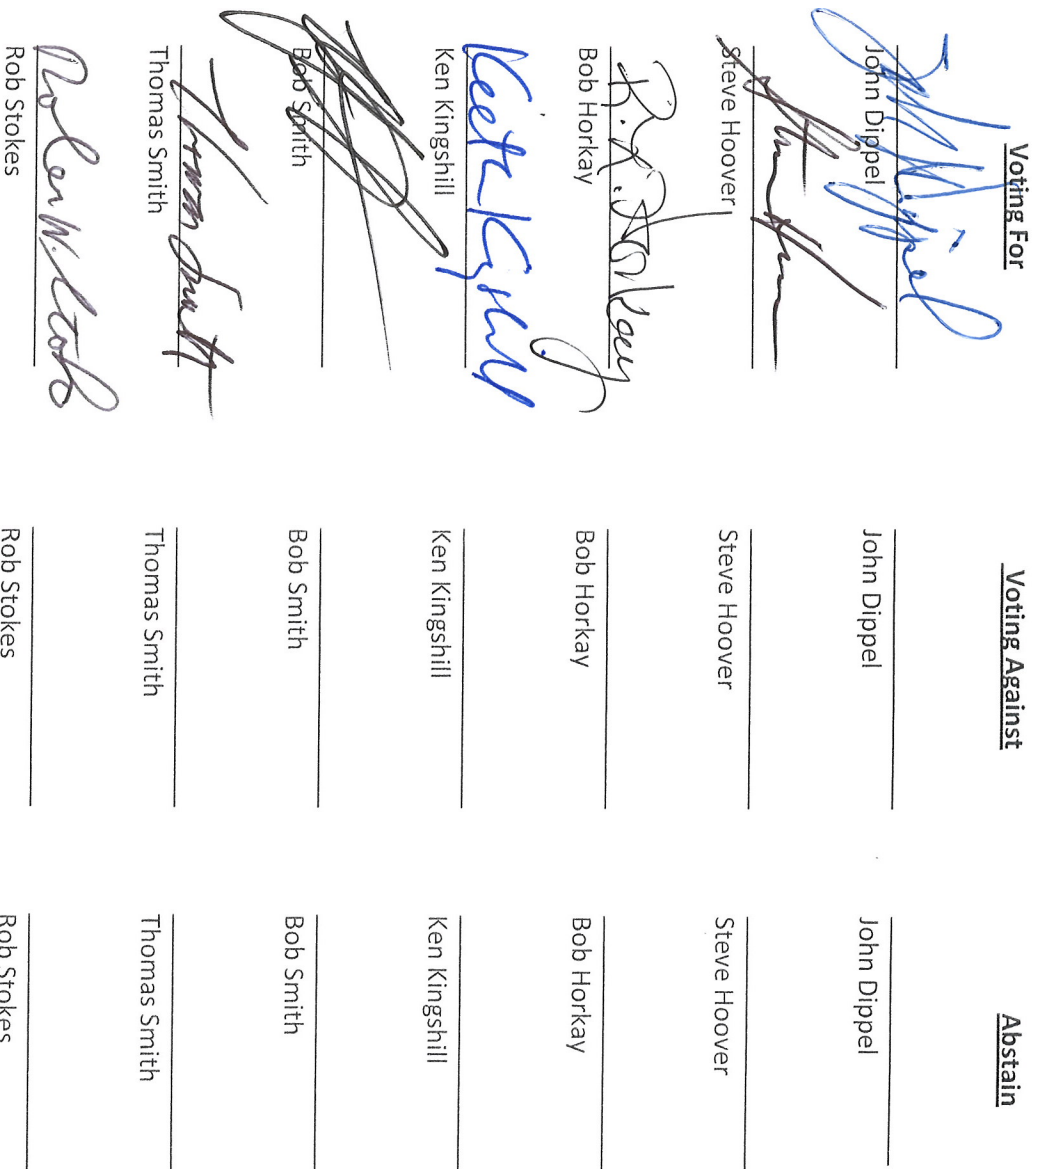 Voting For Voting Against Abstain
John Dippel John Dippel John Dippel
Steve Hoover Steve Hoover Steve Hoover
Bob Horkay Bob Horkay Bob Horkay
Keith Kingshill
Ken Kingshill Ken Kingshill Ken Kingshill
Bob Smith Bob Smith Bob Smith
Thomas Smith
Thomas Smith Thomas Smith Thomas Smith
Rob Stokes Rob Stokes Rob Stokes